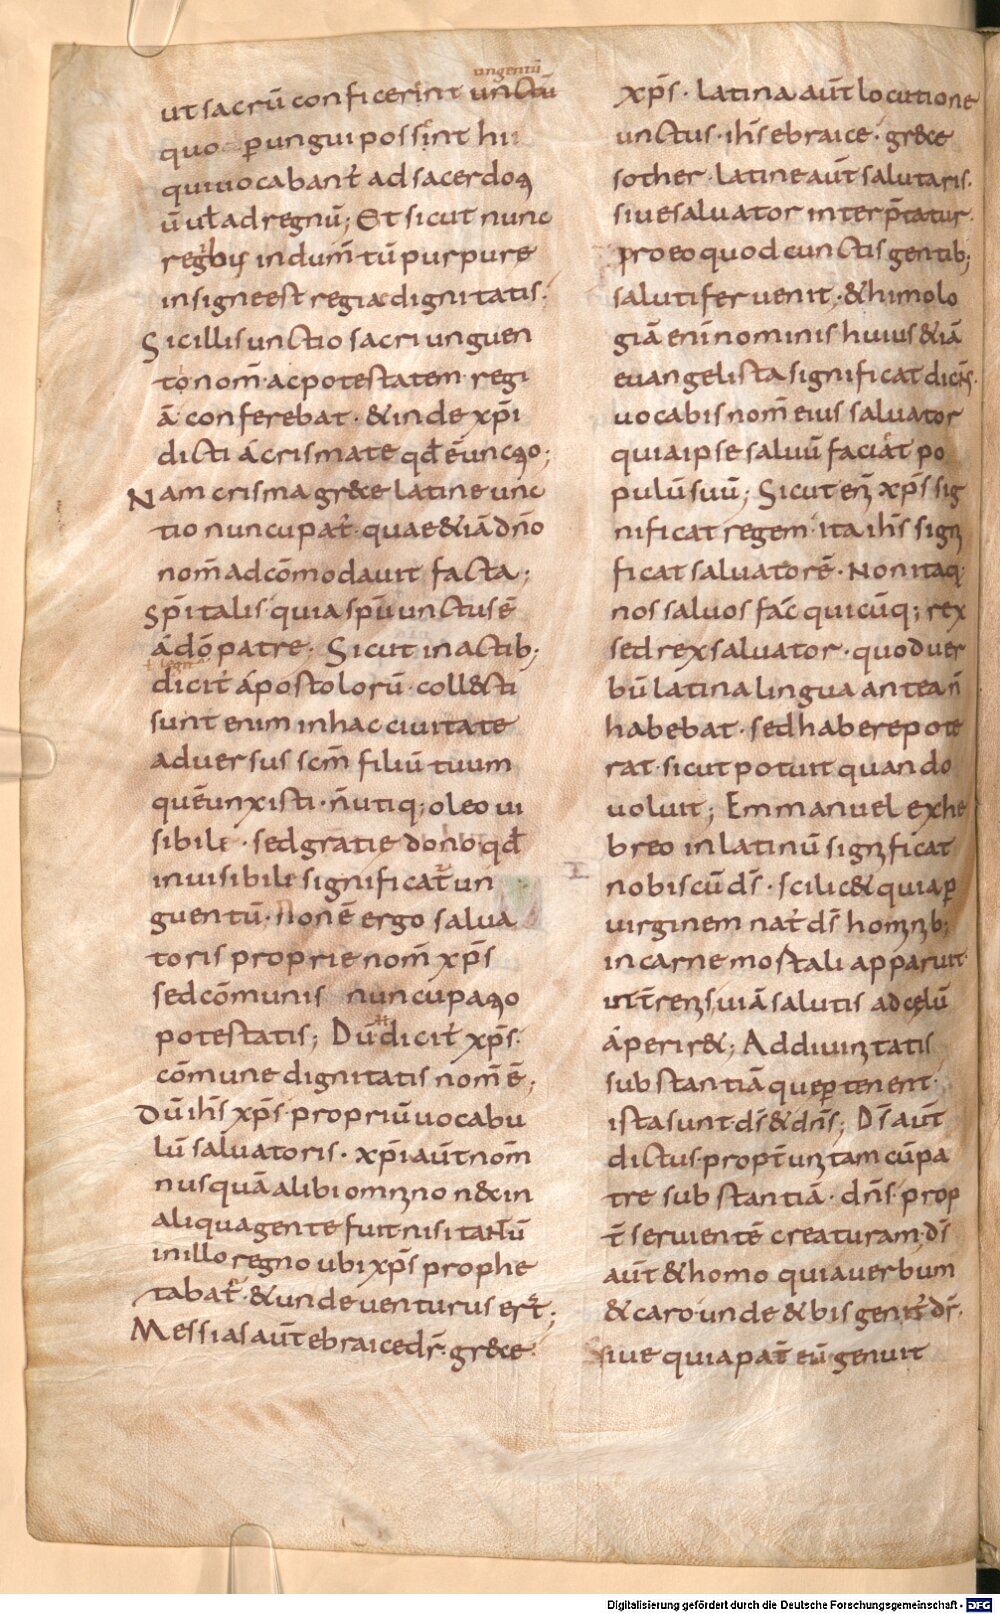 ungentū
ut sacrū conficerint unctū
quo ꝑungui possint hi
qui uocabant᷑ ad sacerdoꝗ
ū ut̄ ad regnū; Et sicut nunc
regibus indum̄tū purpure
insigne est regiae dignitatis.
Sic illis unctio sacri unguen
to nom̄ ac potestatem regi
ā conferebat. & inde xp̄i
dicti á crismate qd̄ ē unctio;
Nam crisma grece latine unc
tio nuncupat᷑. quae & iā dn̄o
nom̄ adcōmodauit facta;
Sp̄italis quia spū unctus ē
á dō patre. Sicut in actib;
dicit᷑ ápostolorū. coll&ti
sunt enim in hac ciuitate
aduersus scm̄ filiū tuum
quē unxisti. n̄ utiq; oleo ui
sibili. sed gratie dono qd̄
inuisibile significat᷑ un
guentū. non ē ergo salua
toris proprie nom̄ xp̄s
sed cōmunis nuncupatio
potestatis; Dū dicit᷑ xp̄s.
cōmune dignitatis nom̄ ē;
Dū ih̄s xp̄s. propriū uocabu
lū saluatoris. xp̄i aūt nom̄
nusquā alibi omnino n& in
aliqua gente fuit nisi tantū
in illo regno ubi xp̄s prophe
tabat᷑. & unde uenturus erat;
Messias aūt ebraice dr̄. grece
xp̄s. latina aūt locutione
unctus. ih̄s ebraice. gr&ce
sother. latine aūt salutaris.
siue saluator interp̄tatur.
pro eo quod cunctis gentib;
salutifer uenit. &himolo
giā eni nominis huius & iā
euangelista significat dicēs.
uocabis nom̄ eius saluator
quia ipse saluū faciat po
pulū suū; Sicut eni xp̄s sig
nificat regem. ita ih̄s signi
ficat saluatorē. Non itaq;
nos saluos fac̄ quicūq; rex
sed rex saluator. quod uer
bū latina lingua antea n̄
habebat. sed habere pote
rat. sicut potuit quando
uoluit; Emmanuel ex he
breo in latinū significat
nobiscū ds̄. scilic& quia ꝑ
uirginem nat᷑ ds̄ hominib;
in carne mostali apparuit
ut t̄reni uiā salutis ad cęlū
áperir&; Ad diuinitatis
substantiā que ꝑtenent.
ista sunt. ds̄ & dn̄s; Ds̄ aūt
dictus propt̄ unitam cū pa
tre substantiā. dn̄s. prop
t̄ seruientē creaturam. ds̄
aūt & homo quia uerbum
& caro. unde & bis genit᷑ dr̄.
siue quia pat̄ eū genuit